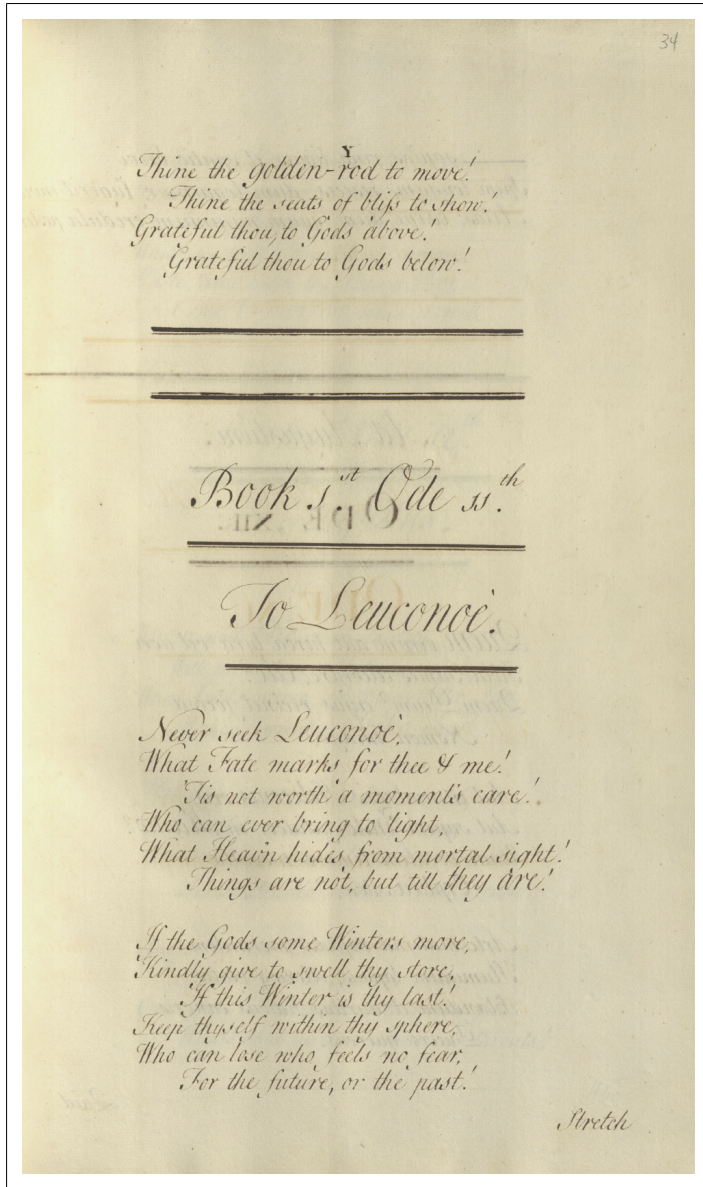 34
Y
Thine the golden-rod to move!
Thine the seats of bliſs to show!
Grateful thou, to Gods above!
Grateful thou to Gods below!
Book 1.st Ode 11.th
To Leuconoè.
Never seek Leuconoè,
What Fate marks for thee & me!
'Tis not worth a moment's care!
Who can ever bring to light,
What Heav'n hides from mortal sight!
Things are not, but till they are!
If the Gods some Winters more,
Kindly give to swell thy store,
If this Winter is thy last!
Keep thyself within thy sphere,
Who can lose who feels no fear,
For the future, or the past!
Stretch